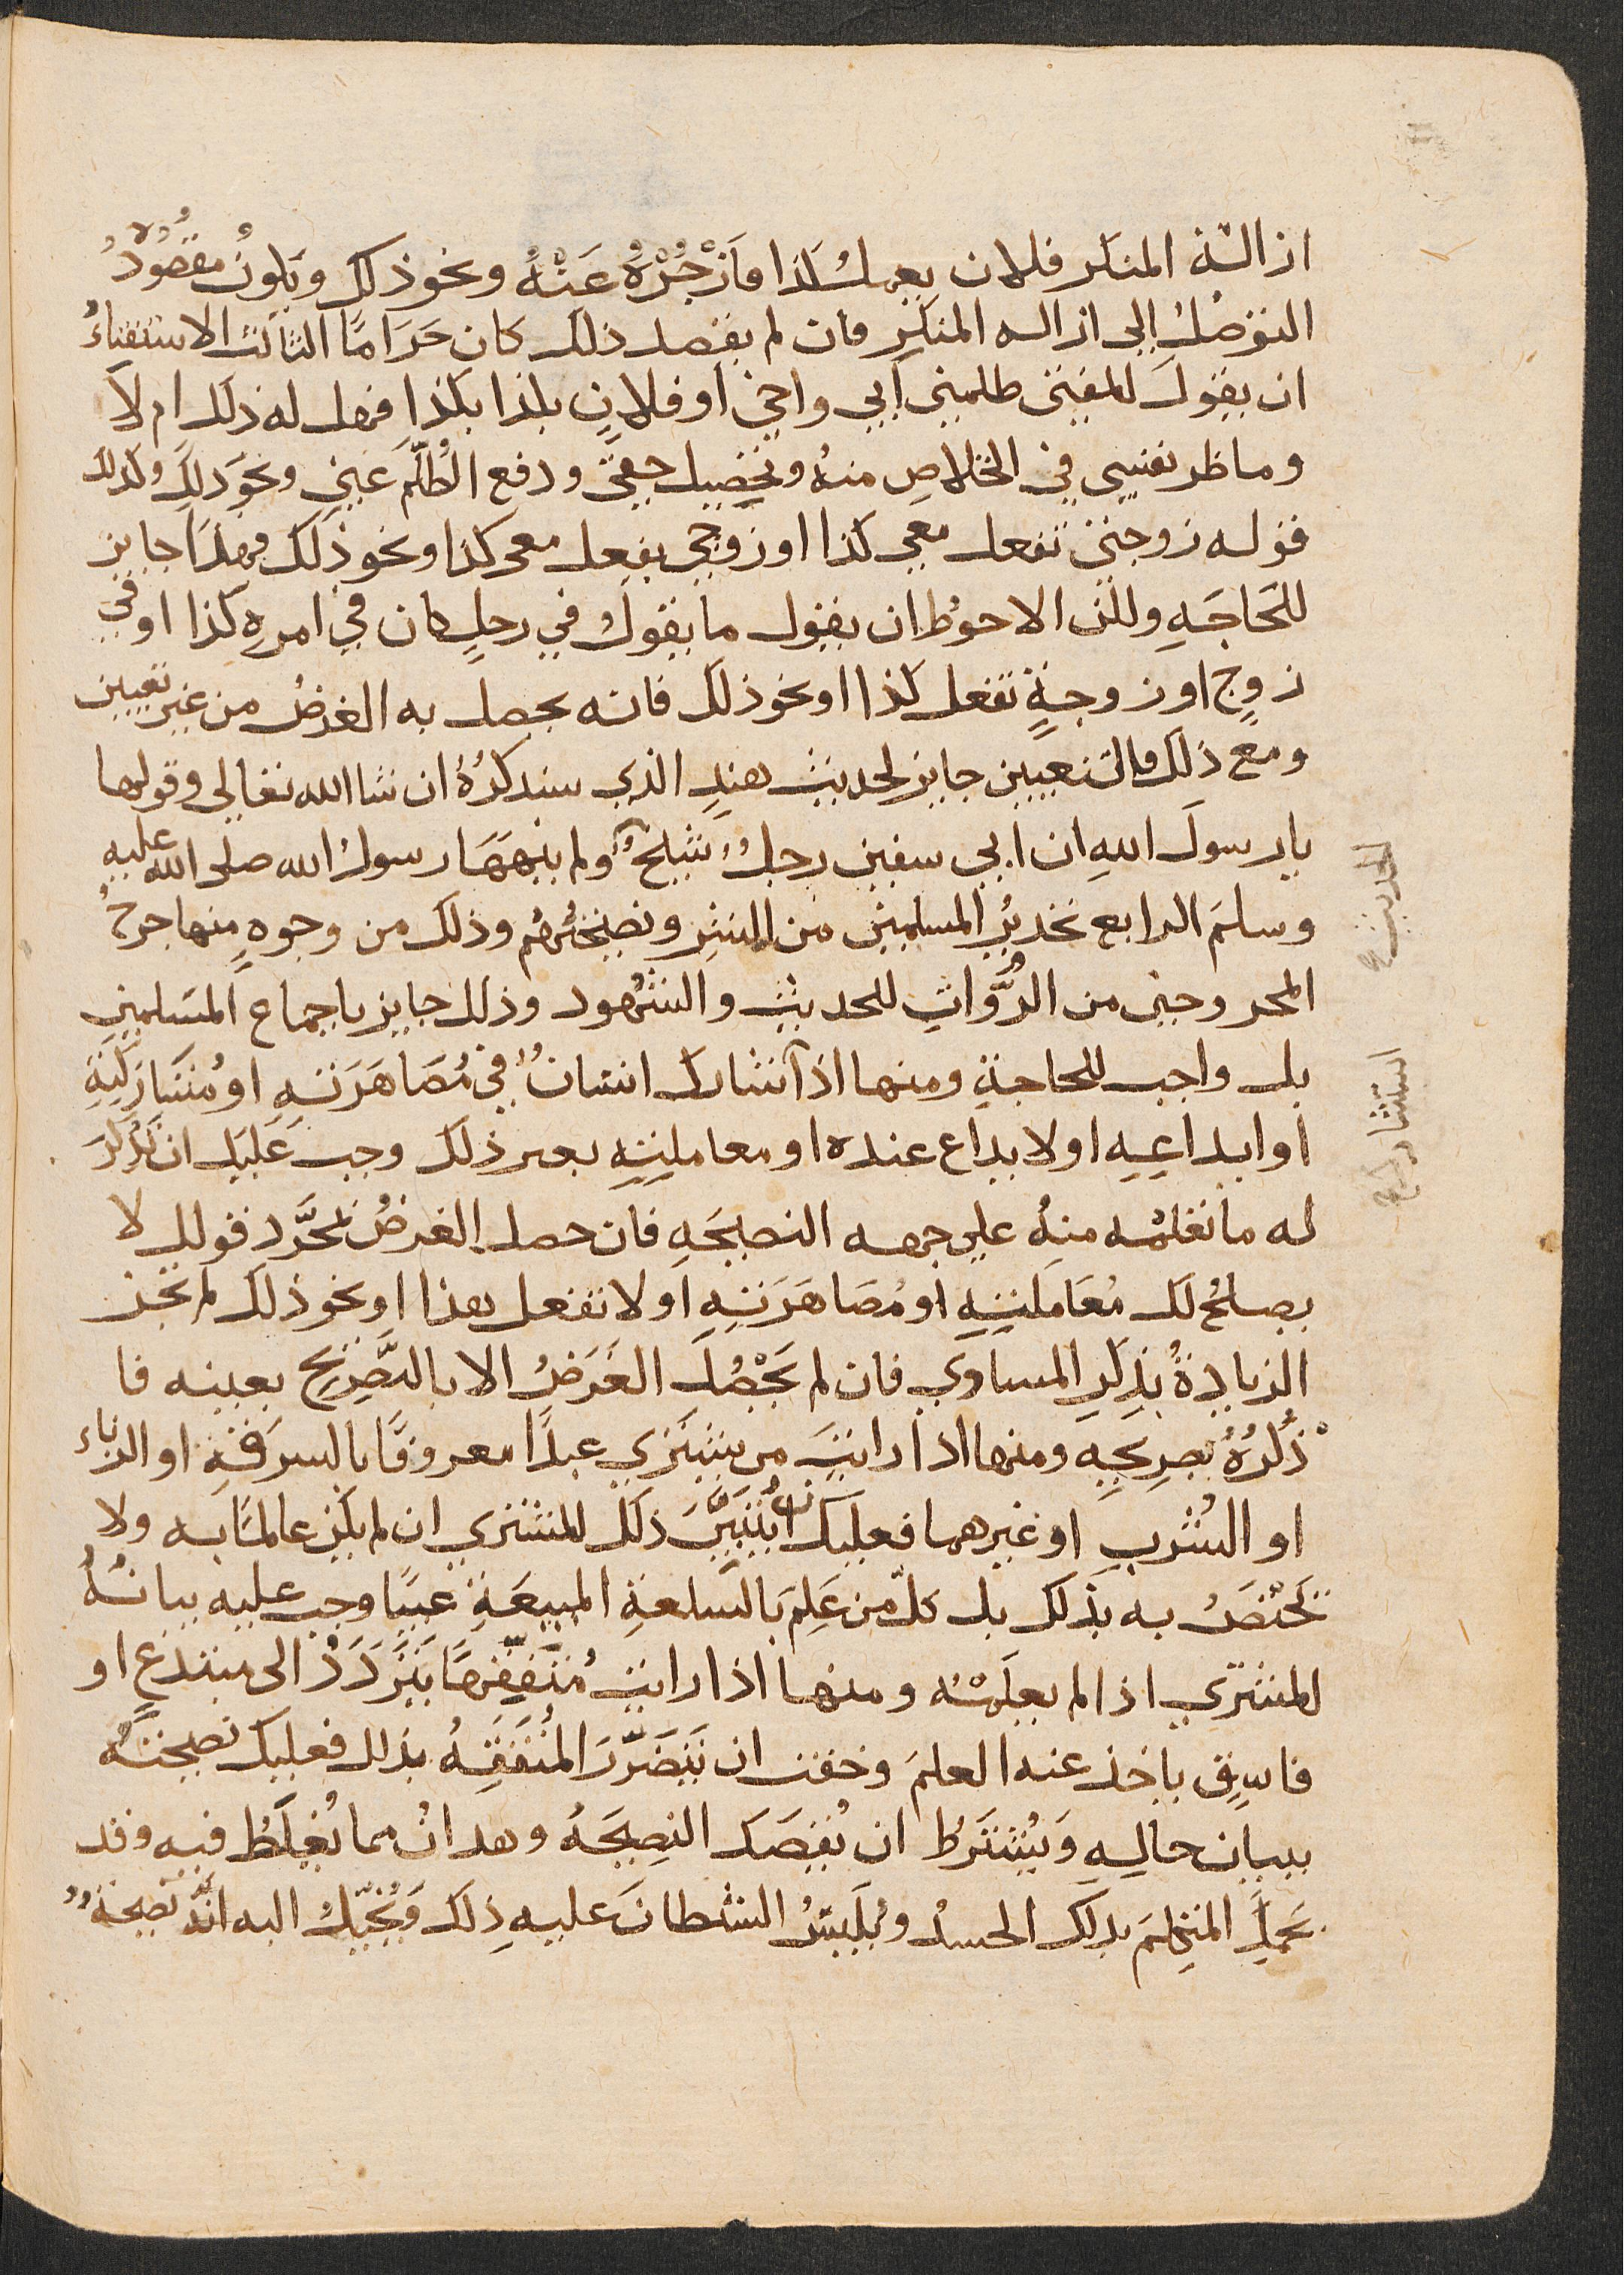 ازالة المنكر فلان يعمل كذا فازْجُرْهُ عَنْهُ ونحو ذلك ويكونُ مقصُودُهُ
التوصُلُ إلى ازاله المنكرِ فان لم يقصد ذلك كان حَرَامًا الثالث الاستفتاءُ
ان يقولَ للمفتى ظلمني أبي واخي او فلانٍ بكذا بكذا فهل له ذلك ام لاَ
وما طريقي في الخلاصِ منهُ وتحصيل حقى ودفع الظُلّم عَنِي ونحوَ ذلِكَ وكذلك
قوله زوجتى تفعل معي كذا او زوجي يفعل معى كذا ونحو ذلك فهذَا جايز
للحَاجَهِ ولكن الاحوطُ ان يقول ما يقولُ في رجلٍ كان في امرِهِ كذا او في
زوجٍ او زوجةٍ تفعل كذا او نحو ذلك فانه يحصل به الغرضُ من غير تعيين
ومع ذلك فالتعيين جايز لحديث هندٍ الذي سنذكرُهُ ان شا الله تعالى وقولها
يا رسولَ اللهِ ان ابي سفين رجلٌ شيحٌ ولم ينهَهَا رسولُ الله صلى الله عليه
وسلمَ الرابع تحذيرُ المسلمين من الشرِ ونصيحتُهُم وذلك من وجوهٍ منها جرحُ
المجروحين من الرُّواتِ للحديث والشُهود وذلك جايز باجماع المسَلمين
بل واجب للحاجةِ ومنها اذا شاركَ انسانٌ في مُصَاهَرَتهِ او مُشَارَكَتِهِ
او ايداعِهِ او لايداع عنده او معاملتِهِ بعير ذلك وجب عَليك ان تذكُرَ
له ما تعلمُه منهُ على جهه النصيحَهِ فان حصل الغرضُ بمُجرَّد قولك لا
يصلحُ لك مُعَامَلتِهِ او مُصَاهَرَتِهِ او لا تفعل هذا او نحو ذلك لم تجز
الزيادةُ بذِكرِ المساوي فان لم يَحْصُل الغَرَضُ الا بالتَّصْرِيحِ بعينه فا
ذْكُرْهُ بصرِيحِهِ ومنها اذا رايتَ من يشتري عبدًا معروفًا بالسرقةِ او الزناء
او الشُربِ او غيرهما فعليك ان تُبَيِّنَ ذلك للمشتري ان لم يكن عالمًا به ولا
يَخْتَصُ به بذلك بل كلّ من عَلِمَ بالسلعةِ المبيعَةِ عيبًا وجب عليه بيانُهُ
للمشتري اذا لم يعلَمْهُ ومنها اذا رايت مُتَفَقِّهًا يَتَرَدَدُ الى مبتدعٍ او
فاسِقٍ ياخذ عنه العلمَ وخفت ان يَتَضَرَّرَ المُتَفَقِهُ بذلك فعليكَ نصيحَتُهُ
ببيان حالِهِ وَيُشْتَرَطُ ان يُقصَدَ النصِيحَهُ وهدا مما يُغلَطُ فيه وقد
يَحمِلُ المتكِلمَ بدلك الحسدُ ويُلَبِسُ الشطانَ عليهِ ذِلك وَيُخَيِّلُ اليه انَّهُ نصيحَةٌ
الحديث ع
استشارك ع